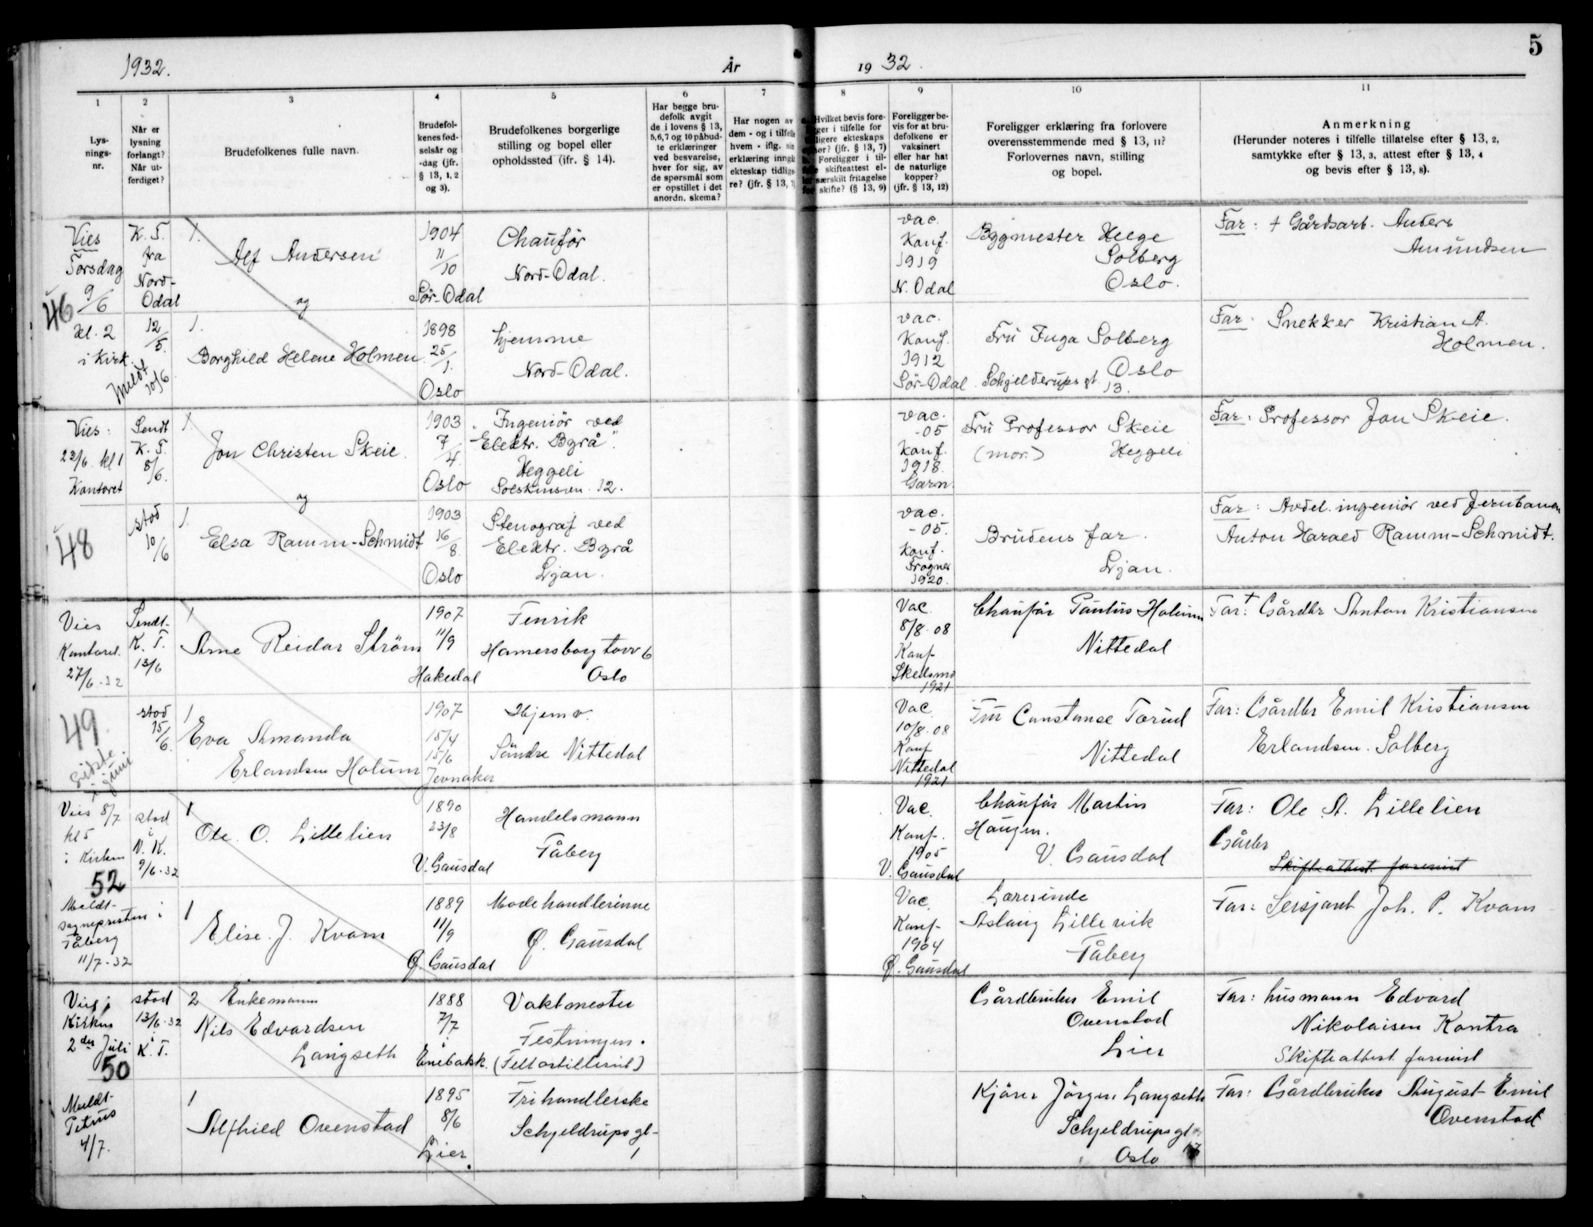 1932.
År
19 32.
5
1
2
3
4
5
6
7
8
9
10
11
Lys-
nings-
nr.
Når er
lysning
forlangt?
Når ut-
ferdiget?
Brudefolkenes fulle navn.
Brudefol-
kenes fød-
selsår og
-dag (jfr.
§ 13, 1, 2
og 3).
Brudefolkenes borgerlige
stilling og bopel eller
opholdssted (ifr. § 14).
Har begge bru-
defolk avgit
de i lovens § 13,
5,6,7 og 10 påbud-
te erklæringer
ved besvarelse,
hver for sig, av
de spørsmål som
er opstillet i det
anordn. skema?
Har nogen av
dem - og i tilfelle
hvem - iflg. sin
erklæring inngått
ekteskap tidlige-
re? (jfr. § 13, 7)
Hvilket bevis fore-
ger i tilfelle for
ligere ekteskaps
hør? (jfr. § 13, 7)
Foreligger i til-
skifteattest el-
særskilt fritagelse
skifte? (§ 13, 9)
Foreligger be-
vis for at bru-
defolkene er
vaksinert
eller har hat
de naturlige
kopper?
(jfr. § 13, 12)
Foreligger erklæring fra forlovere
overensstemmende med § 13, 11?
Forlovernes navn, stilling
og bopel.
Anmerkning
(Herunder noteres i tilfelle tillatelse efter § 13, 2,
samtykke efter § 13, 3, attest efter § 13, 4
og bevis efter § 13, 8).
Vies
Torsdag
9/6
46
kl. 2
i Kirk
Meldt
10/6
K. T.
fra
Nord-
Odal
12/5.
1.
Alf Andersen
og
1904
11/10
Sør-Odal
Chauffør
Nord-Odal.
vac.
Konf.
1919
N. Odal
Bygmester Helge
Solberg
Oslo.
Far: † Gårdsarb. Anders
Amundsen
1.
Borghild Helene Holmen
1898
25/1.
Oslo
hjemme
Nord-Odal.
vac.
Konf.
1912
Sør-Odal
Fru Inga Solberg
Oslo
Schjelderups gt. 13.
Far: Snekker Kristian A.
Holmen.
Vies:
22/6 kl 1
Kontoret
48
Sendt
K. T.
8/6.
1
Jon Christen Skeie
og
1903
7/4.
Oslo
Ingeniør ved
"Elektr. Byrå".
Heggeli
Solskinsvn. 12.
vac.
-05
Konf.
1918.
Garn.
Fru Professor Skeie
(mor.) Heggeli
Far: Professor Jon Skeie.
stod
10/6
1.
Elsa Ramm-Schmidt
1903
16/8.
Oslo
Stenograf ved
Elektr. Byrå
Ljan.
vac.
-05.
Konf.
Frogner
1920.
Brudens far.
Ljan.
Far: Avdel. ingeniør ved Jernbanen
Anton Harald Ramm-Schmidt.
Vies
Kontoret.
27/6-32
49.
Siste
i juni
Sendt
K. T.
13/6
1
Arne Reidar Strøm
1907
11/9
Hakedal
Fenrik
Hamersborg torv 6
Oslo
Vac
8/8-08
Konf
Skedsmo
1921
Chauffør Paulus Holum
Nittedal
Far: † Gårdbr Anton Kristiansen
stod
15/6.
1
Eva Amanda
Erlandsen Holum
1907
15/4
15/6
Jevnaker
Hjemv.
Søndre Nittedal
Vac
10/8-08
Konf
Nittedal
1921
Fru Constanse Torud
Nittedal
Far: Gårdbr Emil Kristiansen
Erlandsen. Solberg
Vies 8/7
kl 5
i Kirken
52
Meldt-
sognepresten i
Fåberg
11/7-32
stod
i
N. K.
9/6-32
1
Ole. O. Lillelien
1890
23/8
V. Gausdal
Handelsmann
Fåberg
Vac.
Konf.
1905
V. Gausdal
Chauffør Martin
Haugen.
V. Gausdal
Far: Ole A. Lillelien
Gårbr
Skifteattest forevist
1
Elise. J. Kvam
1889
11/9
Ø. Gausdal
Motehandlerinne
Ø. Gausdal
Vac.
Konf-
1904
Ø. Gausdal
Lærerinde
Aslaug Lillevik
Fåberg
Far: Sersjant Joh. P. Kvam
Vies i
Kirken
2den Juli
50
Meldt-
Petrus
4/7.
stod
13/6-32
i
K. T.
2 Enkemann
Nils Edvardsen
Langseth
1888
7/7
Enebakk.
Vaktmester
Festningen.
(Feltartilleriet)
Gårdbruker Emil
Ovenstad
Lier
Far: husmann Edvard
Nikolaisen Kontra
Skifteattest forevist
1
Alfhild Ovenstad
1895
8/6
Lier.
Frihandlerske
Schjeldrups gt-
1
Kjører Jørgen Langseth
Schjeldrups gt
Oslo
Far: Gårdbruker August Emil
Ovenstad